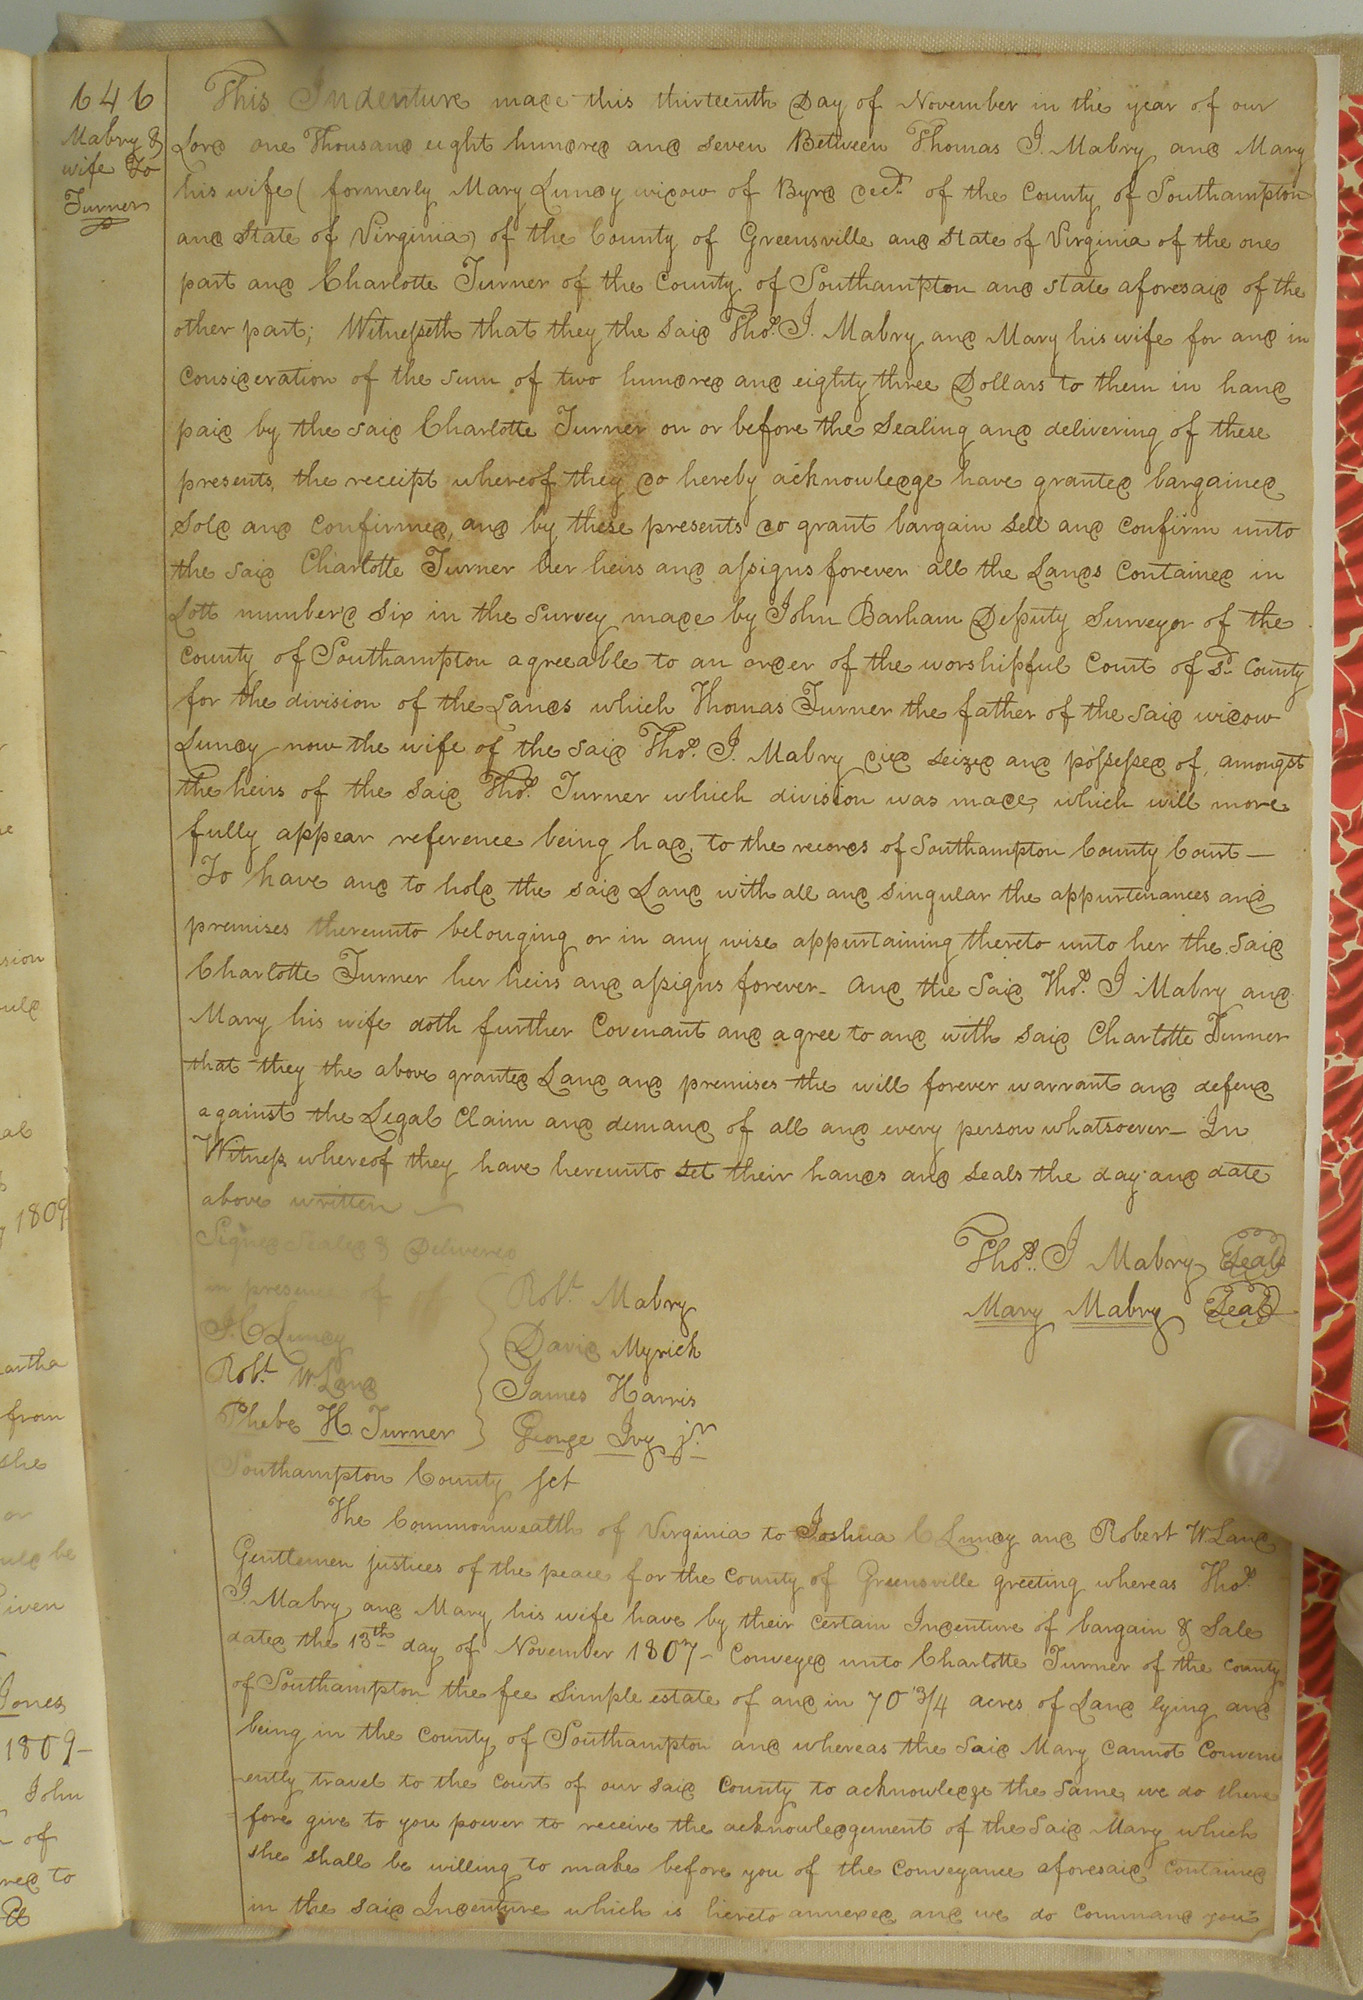 646
Mabry &
wife To
Turner
This Indenture made this thirteenth Day of November in the year of our
Lord one Thousand eight hundred and seven Between Thomas J. Mabry and Mary
his wife ( formerly Mary Lundy widow of Byrd decd. of the County of Southampton
and State of Virginia) of the County of Greensville and State of Virginia of the one
part and Charlotte Turner of the County of Southampton and state aforesaid of the
other part; Witnesseth that they the said Thos. J. Mabry and Mary his wife for and in
consideration of the sum of two hundred and eighty three Dollars to them in hand
paid by the said Charlotte Turner on or before the Sealing and delivering of these
presents, the receipt whereof they do hereby acknowledge have granted bargained
Sold and confirmed, and by these presents do grant bargain sell and confirm unto
the said Charlotte Turner her heirs and assigns forever all the Lands Contained in
Lott number'd Six in the survey made by John Barham Deputy Surveyor of the
County of Southampton agreeable to an order of the worshipful Court of sd. County
for the division of the Lands which Thomas Turner the father of the said widow
Lundy now the wife of the said Thos. J. Mabry died seized and possessed of, amongst
the heirs of the said Thos. Turner which division was made, which will more
fully appear reference being had, to the records of Southampton County Court—
To have and to hold the said Land with all and singular the appurtenances and
premises thereunto belonging or in any wise appurtaining thereto unto her the said
Charlotte Turner her heirs and assigns forever– And the Said Thos. J Mabry and
Mary his wife doth further Covenant and agree to and with said Charlotte Turner
that they the above granted Land and premises the will forever warrant and defend
against the Legal Claim and demand of all and every person whatsoever– In
Witness whereof they have hereunto set their hands and seals the day and date
above written
Signed Sealed & Delivered
in presence of
J. C Lundy
Robt. W. Land
Phebe H. Turner
Robt. Mabry
David Myrick
James Harris
George Ivy jr.
Thos. J Mabry Seal
Mary Mabry Seal
Southampton County Sct
The Commonwealth of Virginia to Joshua C Lundy and Robert W Land
Gentlemen justices of the peace for the County of Greensville greeting whereas Thos.
J. Mabry and Mary his wife have by their certain Indenture of bargain & Sale
dated the 13th day of November 1807– Conveyed unto Charlotte Turner of the County
of Southampton the fee simple estate of and in 70 3/4 acres of Land lying and
being in the County of Southampton and whereas the said Mary cannot Conveni
ently travel to the Court of our said County to acknowledge the same, we do there
fore give to you power to receive the acknowledgement of the said Mary which
she shall be willing to make before you of the Conveyance aforesaid Contained
in the said Indenture which is hereto annexed and we do command you
1809
artha
from
she
Given
Jones
1809–
John
of